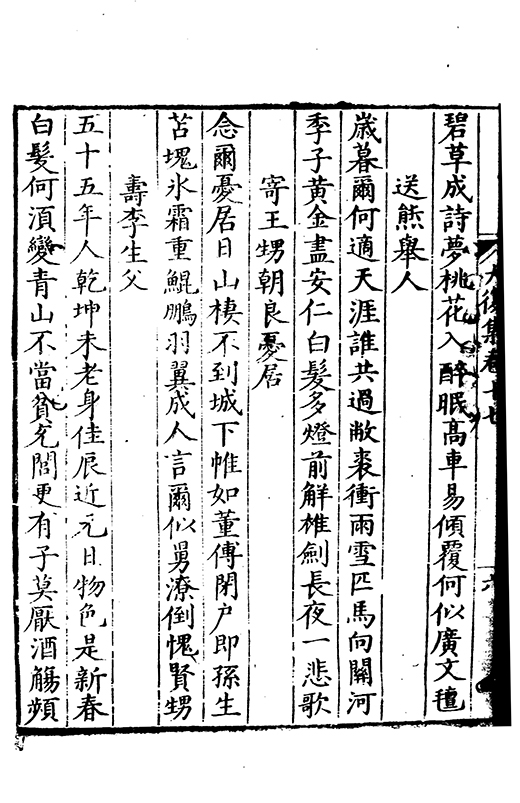 大復集卷十七
六
碧草成詩夢桃花入醉眠高車易傾覆何似廣文氊
送熊舉人
歲暮爾何適天涯誰共過敝裘衝雨雪匹馬向關河
季子黃金盡安仁白髮多燈前解雄劍長夜一悲歌
寄王甥朝良憂居
念爾憂居日山棲不到城下帷如董傅閉户即孫生
苫塊氷霜重鯤鵬羽翼成人言爾似舅潦倒愧賢甥
壽李生父
五十五年人乾坤未老身佳辰近元日物色是新春
白髮何湏變青山不當貧充閭更有子莫厭酒觴頻